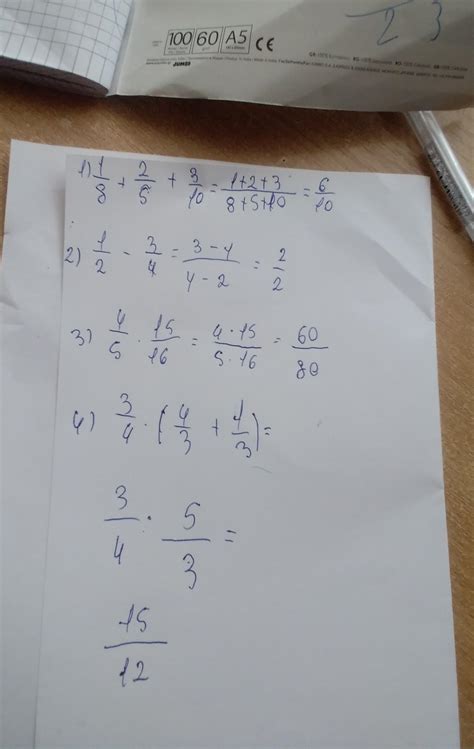 100 60 A5 CE
JUMBO
23
1) 1/8 + 2/5 + 3/10 = 1+2+3/8+5+10 = 6/10
2) 1/2 - 3/4 = 3-1/4-2 = 2/2
3) 4/5 · 15/16 = 4·15/5·16 = 60/80
4) 3/4 · (4/3 + 1/3) =
3/4 · 5/3 =
15/12